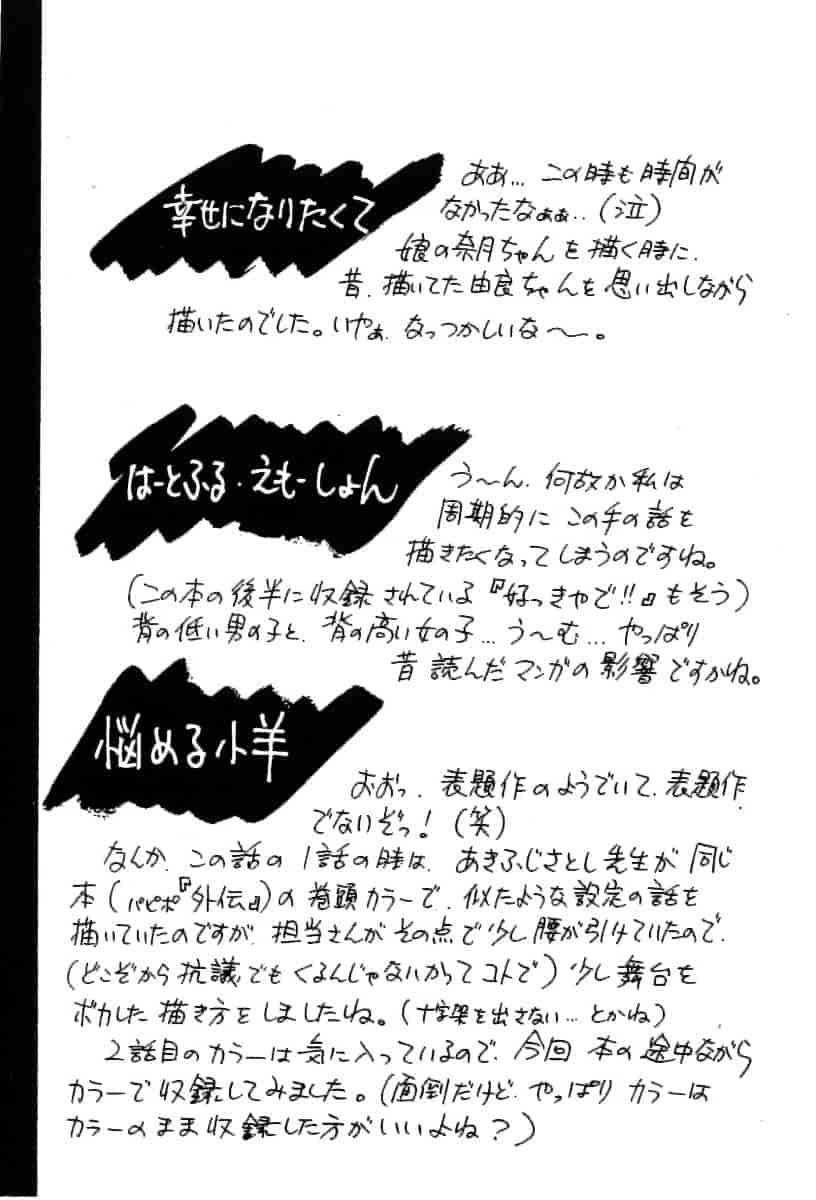 幸せになりたくて
ああ… この時も時間が
なかったなぁぁ‥(泣)
娘の奈月ちゃんを描く時に、
昔、描いてた由良ちゃんを思い出しながら
描いたのでした。いやぁ、なっつかしいな〜。
はーとふる・えもーしょん
う〜ん、何故か私は
周期的に この手の話を
描きたくなってしまうのですね。
(この本の後半に収録されている『好っきゃで!!』もそう)
背の低い男の子と、背の高い女の子… う〜む… やっぱり
昔 読んだマンガの影響ですかね。
悩める小羊
おおっ、表題作のようでいて、表題作
でないぞっ!(笑)
なんか、この話の1話の時は、あきふじさとし先生が 同じ
本(パピポ『外伝』)の巻頭カラーで、似たような設定の話を
描いていたのですが、担当さんがその点で少し腰が引けていたので、
(どこぞから抗議でもくるんじゃないかってコトで)少し舞台を
ボカした描き方をしましたね。(十字架を出さない… とかね)
2話目のカラーは気に入っているので、今回 本の途中ながら
カラーで収録してみました。(面倒だけど、やっぱり カラーは
カラーのまま収録した方がいいよね?)